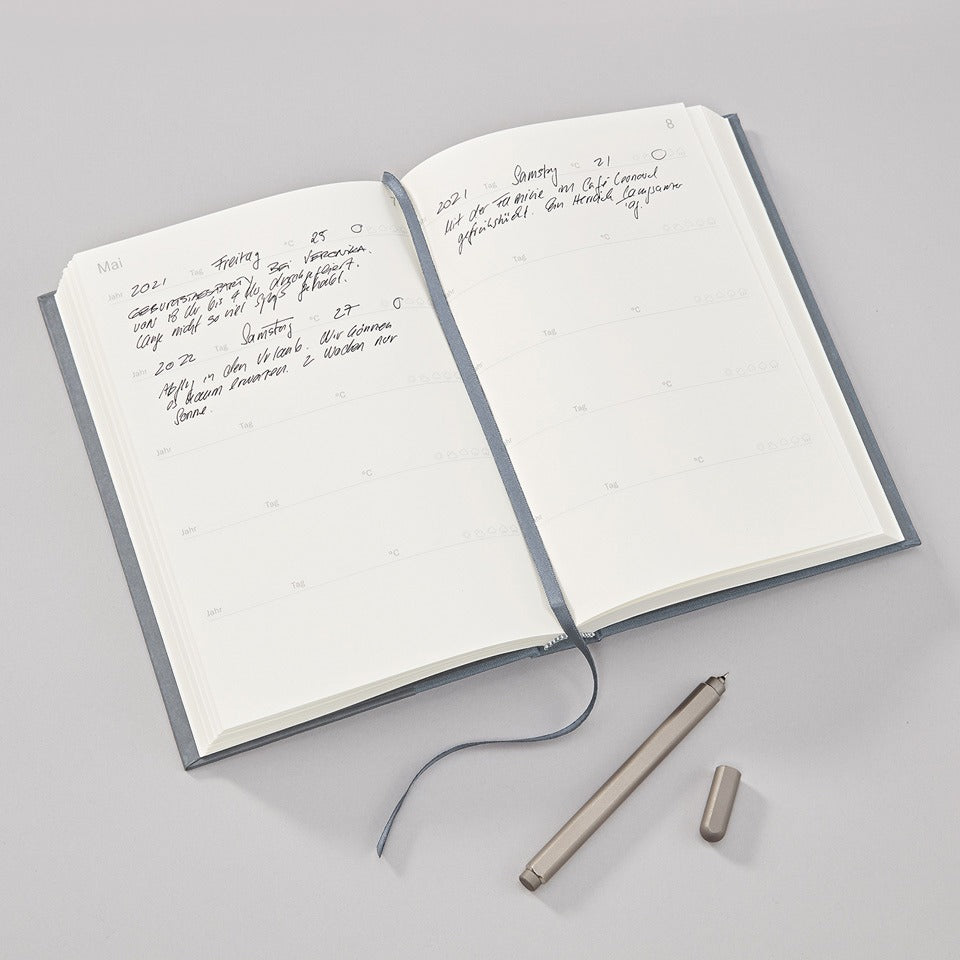 Mai 7
Jahr 2021 Tag Freitag °C 25
GEBURTSTAGSPARTY BEI VERONIKA.
VON 18 Uhr bis 4 Uhr durchgefeiert.
Lange nicht so viel Spaß gehabt.
Jahr 2022 Tag Samstag °C 27
Abflug in den Urlaub. Wir können
es kaum erwarten. 2 Wochen nur
Sonne.
Jahr Tag °C
Jahr Tag °C
Jahr Tag °C
8
2021 Tag Samstag °C 21
Mit der Familie im Café Leonard
gefrühstückt. Ein Herrlich Langsamer
Tag.
Tag °C
Tag °C
Tag °C
Tag °C